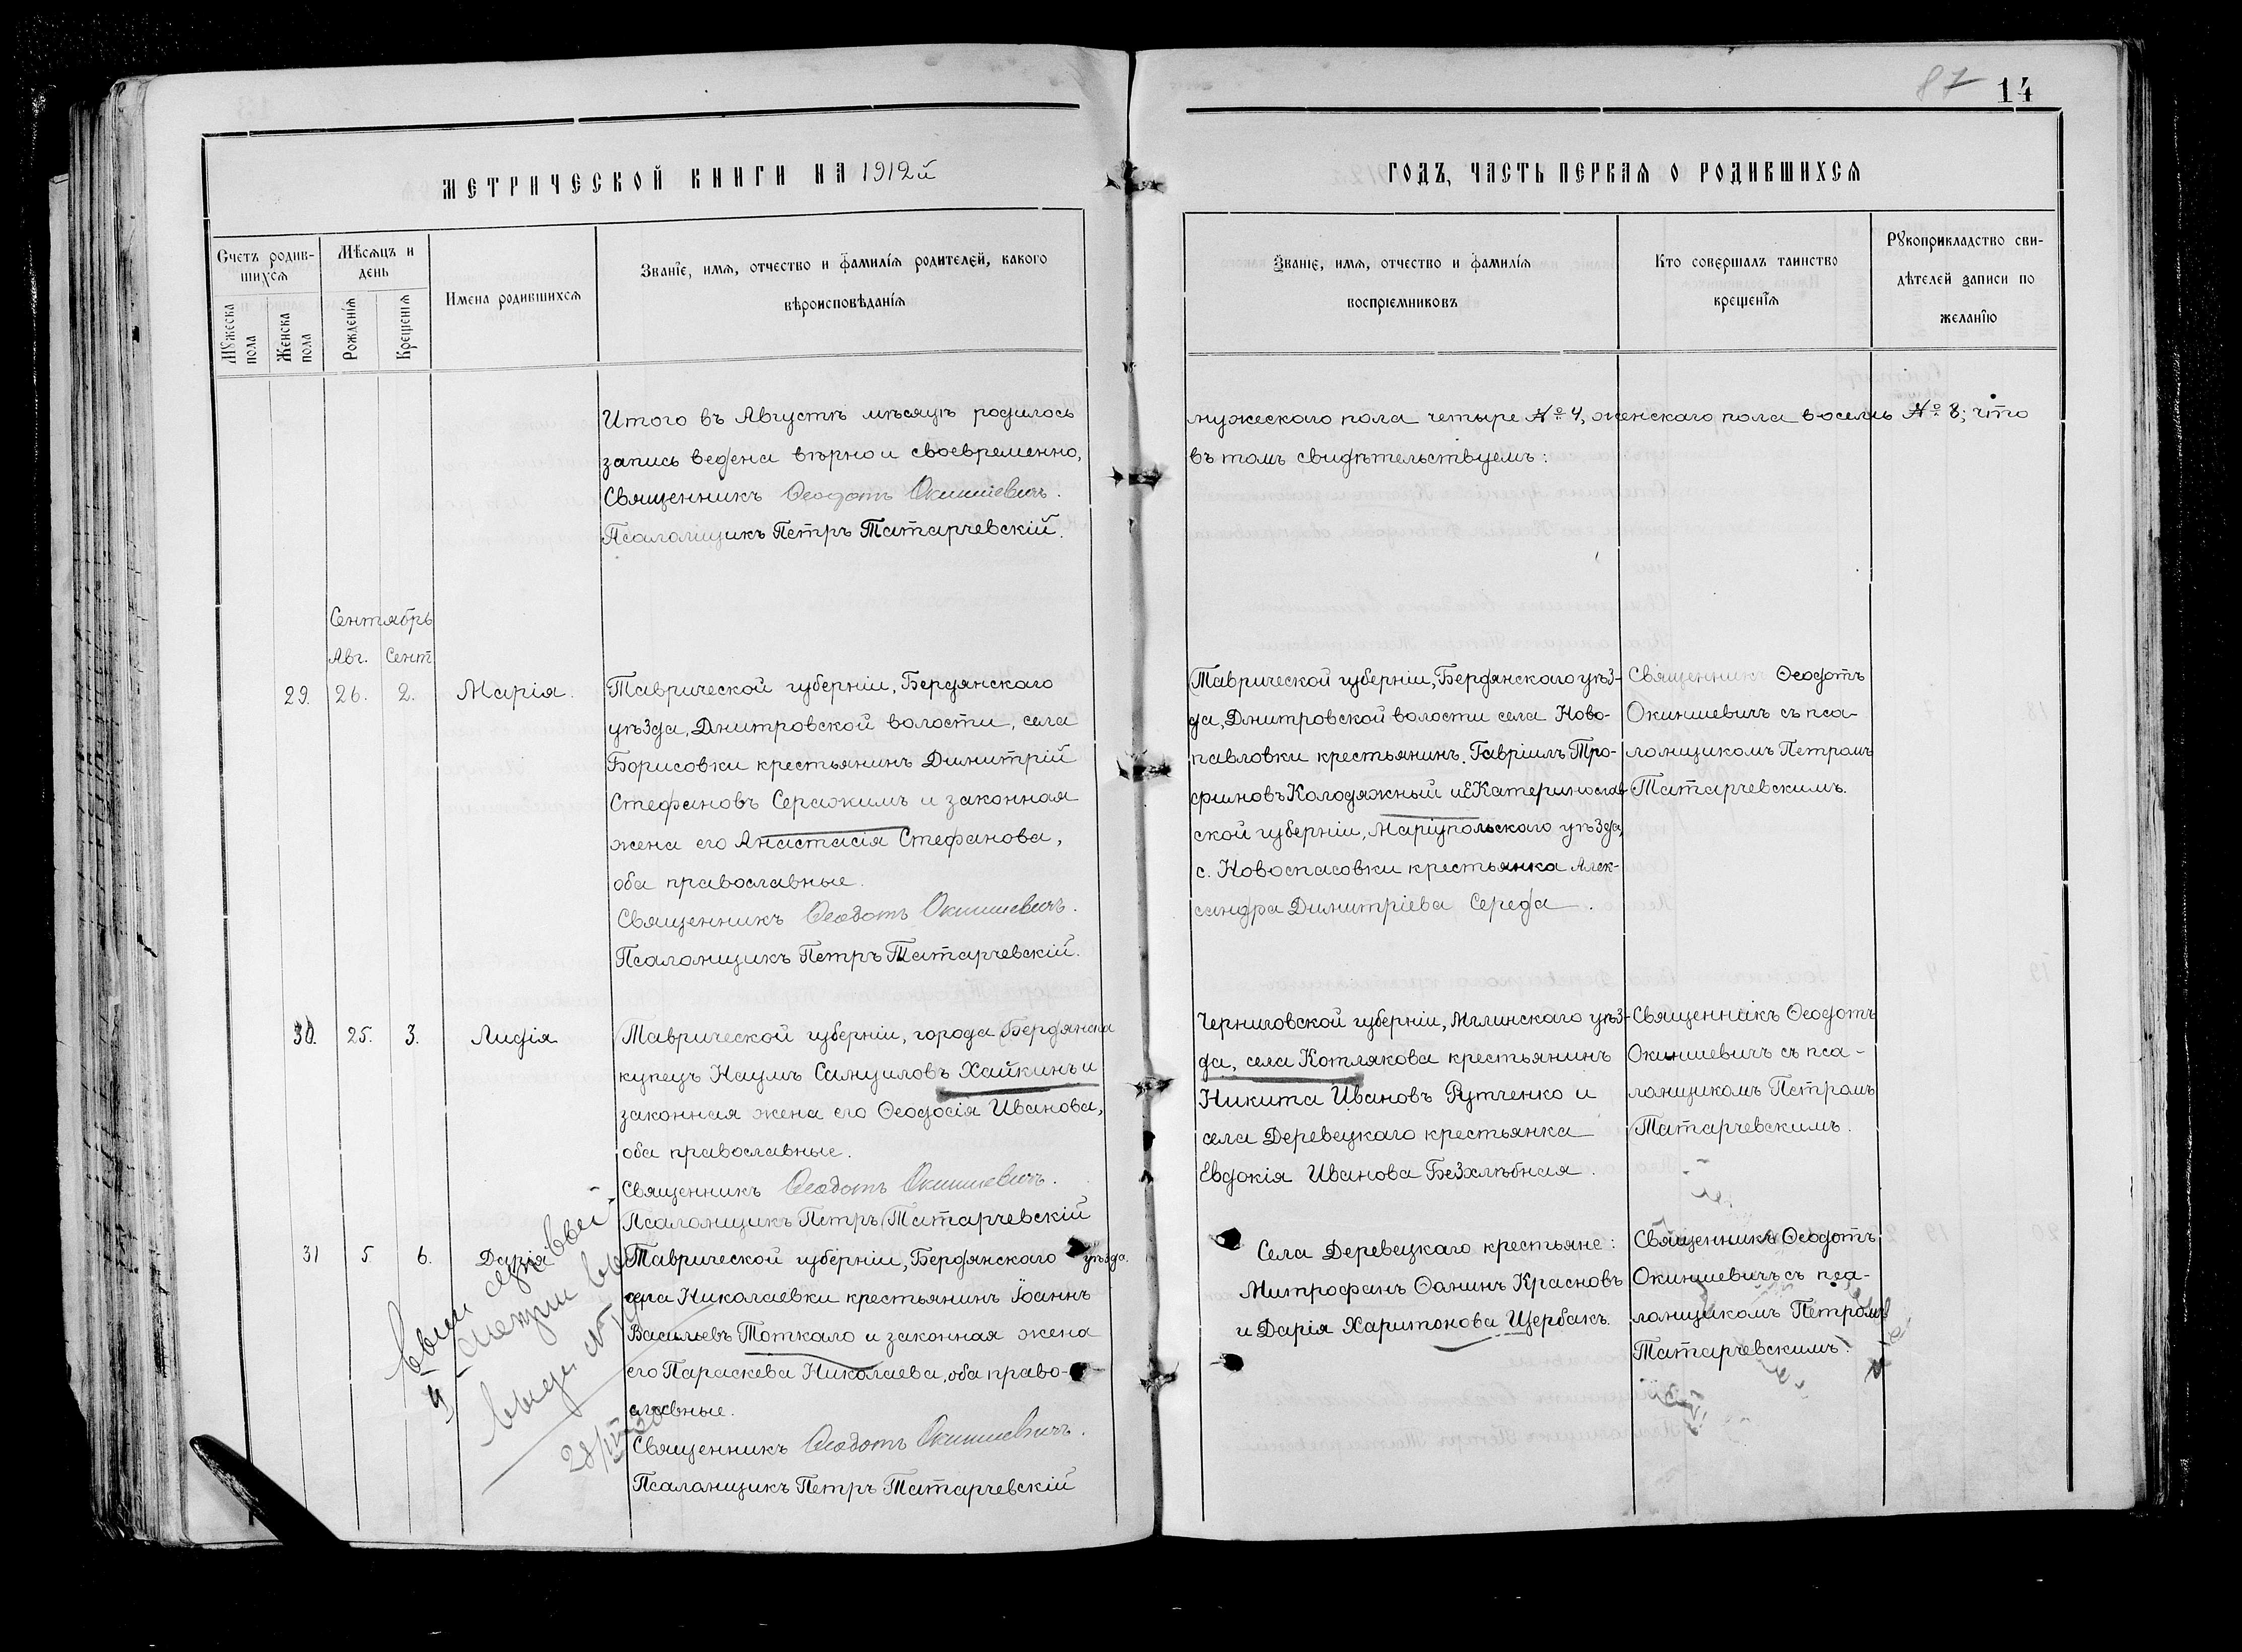 87 14
МЕТРИЧЕСКОЙ КНИГИ НА 1912й
ГОДЪ, ЧАСТЬ ПЕРВАЯ О РОДИВШИХСЯ
Счетъ родив-
шихся
Мужеска
пола
Женска
пола
Мѣсяцъ и
день
Рожденія
Крещенія
Имена родившихся
Званіе, имя, отчество и фамилія родителей, какого
вѣроисповѣданія
Званіе, имя, отчество и фамилія
воспріемниковъ
Кто совершалъ таинство
крещенія
Рукоприкладство сви-
дѣтелей записи по
желанію
Итого въ Августѣ мѣсяцѣ родилось
запись ведена вѣрно и своевременно,
Священникъ Ѳеодотъ Окиншевичъ.
Псаломщикъ Петръ Татарчевскій.
мужескаго пола четыре № 4, женскаго пола восемь № 8; что
въ томъ свидѣтельствуемъ:
Сентябрь
Авг. Сент.
29. 26. 2. Марія.
Таврической губерніи, Бердянскаго
уѣзда, Дмитровской волости, села
Борисовки крестьянинъ Димитрій
Стефановъ Серажимъ и законная
жена его Анастасія Стефанова,
оба православные.
Священникъ Ѳеодотъ Окиншевичъ.
Псаломщикъ Петръ Татарчевскій.
Таврической губерніи, Бердянскаго уѣз-
да, Дмитровской волости села Ново-
павловки крестьянинъ Гавріилъ Тро-
фимовъ Колодяжный и Екатеринослав-
ской губерніи, Маріупольскаго уѣзда,
с. Новоспасовки крестьянка Алек-
сандра Димитріева Середа.
Священникъ Ѳеодотъ
Окиншевичъ съ пса-
ломщикомъ Петромъ
Татарчевскимъ.
30. 25. 3. Лидія
Таврической губерніи, города Бердянска
купецъ Наумъ Самуиловъ Хайкинъ и
законная жена его Ѳеодосія Иванова,
оба православные.
Священникъ Ѳеодотъ Окиншевичъ.
Псаломщикъ Петръ Татарчевскій
Черниговской губерніи, Мглинскаго уѣз-
да, села Котлякова крестьянинъ
Никита Ивановъ Рутченко и
села Деревецкаго крестьянка
Евдокія Иванова Безхлѣбная.
Священникъ Ѳеодотъ
Окиншевичъ съ пса-
ломщикомъ Петромъ
Татарчевскимъ.
31 5 6. Дарія
Таврической губерніи, Бердянскаго уѣзда.
села Николаевки крестьянинъ Іоаннъ
Васильевъ Тоткало и законная жена
его Параскева Николаева, оба право-
славные.
Священникъ Ѳеодотъ Окиншевичъ.
Псаломщикъ Петръ Татарчевскій
Села Деревецкаго крестьяне:
Митрофанъ Ѳанинъ Красновъ
и Дарія Харитонова Щербакъ.
Священникъ Ѳеодотъ
Окиншевичъ съ пса-
ломщикомъ Петромъ
Татарчевскимъ.